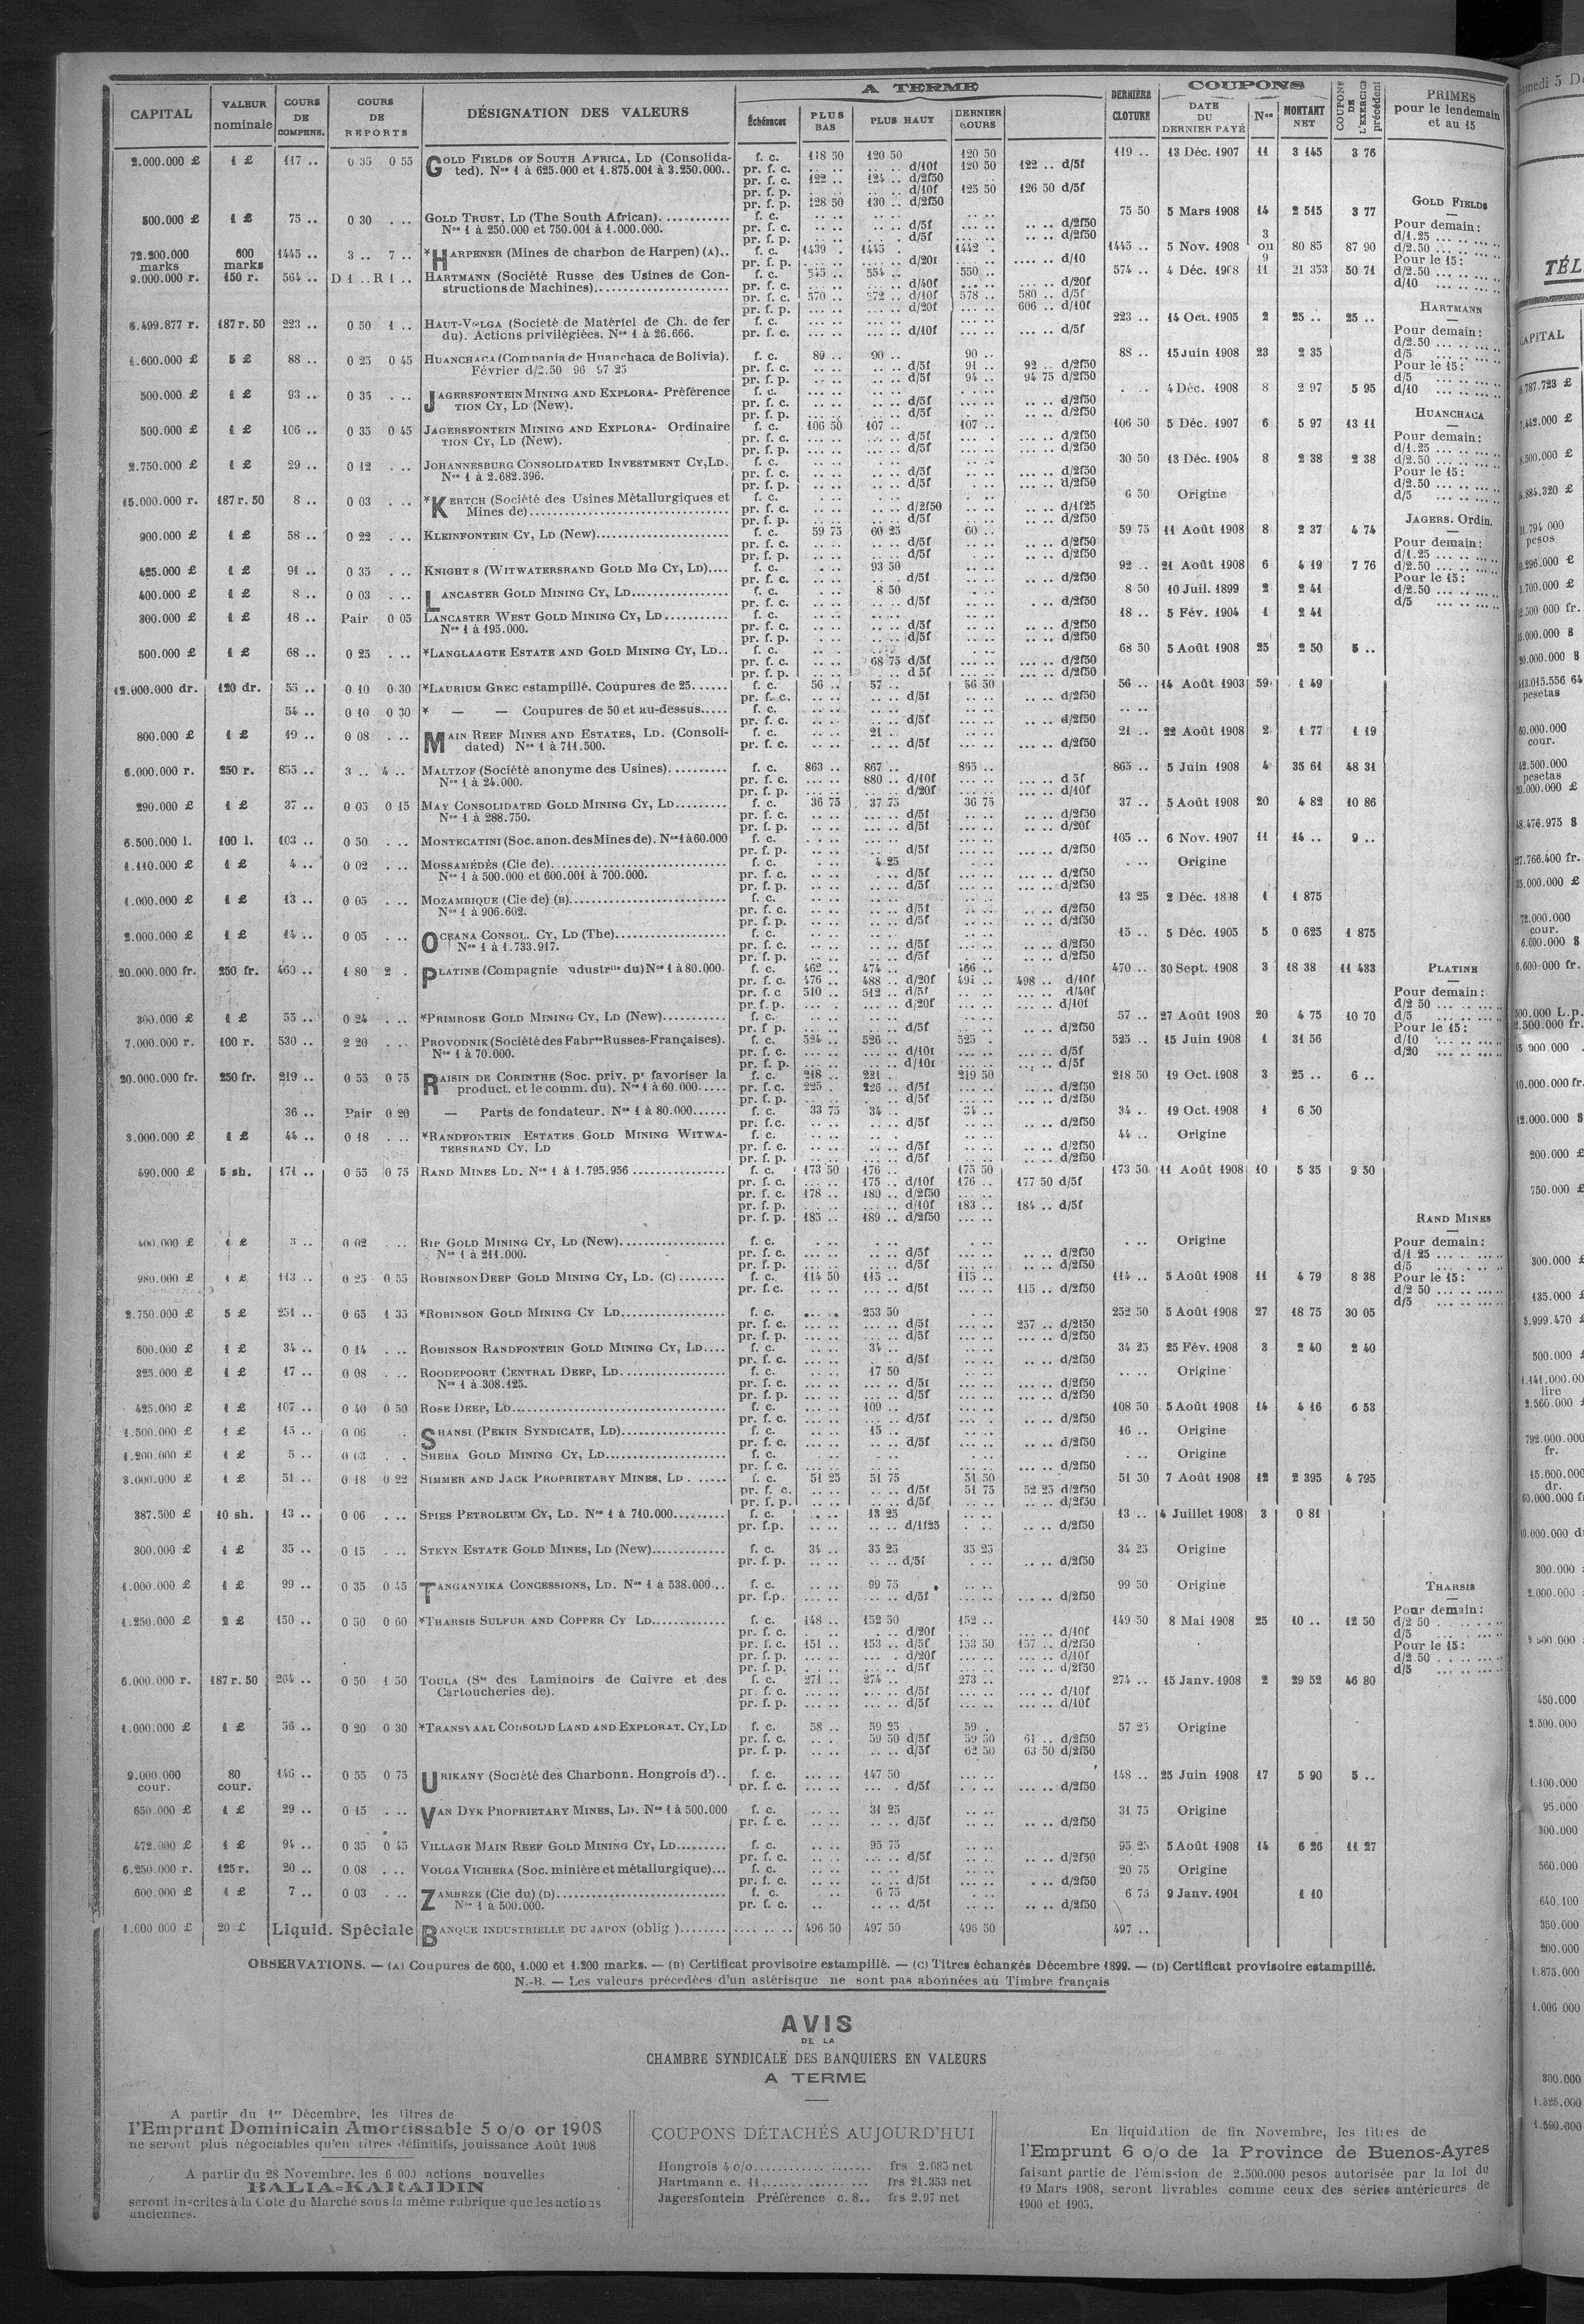 CAPITAL | VALEUR nominale | COURS DE COMPENS. | COURS DE REPORTS | DÉSIGNATION DES VALEURS | A TERME | Échéances | PLUS BAS | PLUS HAUT | DERNIER COURS | DERNIÈRE CLOTURE | COUPONS | DATE DU DERNIER PAYÉ | Nos | MONTANT NET | COUPONS DE L'EXERCICE précédent | PRIMES pour le lendemain et au 15
2.000.000 £ 1 £ 117 .. 0 35 0 55 GOLD FIELDS OF SOUTH AFRICA, LD (Consolida- f. c. 118 50 120 50 120 50 119 .. 13 Déc. 1907 11 3 145 3 76
ted). Nos 1 à 625.000 et 1.875.001 à 3.250.000.. pr. f. c. .. .. .. .. d/10f 120 50 122 .. d/5f
pr. f. c. 122 .. 124 .. d/2f50
pr. f. p. .. .. d/10f 125 50 126 50 d/5f
pr. f. p. 128 50 130 .. d/2f50
500.000 £ 1 £ 75 .. 0 30 . .. GOLD TRUST, LD (The South African)............ f. c. 75 50 5 Mars 1908 14 2 515 3 77
Nos 1 à 250.000 et 750.001 à 1.000.000. pr. f. c. d/5f d/2f50
pr. f. p. d/5f d/2f50
72.200.000 marks 600 marks 1445 .. 3 .. 7 .. *HARPENER (Mines de charbon de Harpen) (A).. f. c. 1439 . 1445 .. 1442 . 1445 .. 5 Nov. 1908 3 ou 9 80 85 87 90
9.000.000 r. 150 r. 564 .. D 1 .. R 1 .. HARTMANN (Société Russe des Usines de Con- f. c. 545 .. 554 .. 550 .. 574 .. 4 Déc. 1908 11 21 353 50 71
structions de Machines)...................... pr. f. c. d/40f d/20f
pr. f. c. 570 .. 572 .. d/10f 578 .. 580 .. d/5f
pr. f. p. d/20f 606 .. d/10f
6.499.877 r. 187 r. 50 223 .. 0 50 1 .. HAUT-VOLGA (Société de Matériel de Ch. de fer f. c. 223 .. 14 Oct. 1905 2 25 .. 25 ..
du). Actions privilégiées. Nos 1 à 26.666. pr. f. c. d/10f d/5f
1.600.000 £ 5 £ 88 .. 0 25 0 45 HUANCHACA (Compania de Huanchaca de Bolivia). f. c. 89 .. 90 .. 90 .. 88 .. 15 Juin 1908 23 2 35
Février d/2.50 96 97 25 pr. f. c. d/5f 91 .. 92 .. d/2f50
pr. f. p. d/5f 94 .. 94 75 d/2f50
500.000 £ 1 £ 93 .. 0 35 . .. JAGERSFONTEIN MINING AND EXPLORA- Préférence f. c. . .. 4 Déc. 1908 8 2 97 5 95
TION CY, LD (New). pr. f. c. d/5f d/2f50
pr. f. p. d/5f d/2f50
500.000 £ 1 £ 106 .. 0 35 0 45 JAGERSFONTEIN MINING AND EXPLORA- Ordinaire f. c. 106 50 107 .. 107 .. 106 50 5 Déc. 1907 6 5 97 13 11
TION CY, LD (New). pr. f. c. d/5f d/2f50
pr. f. p. d/5f d/2f50
2.750.000 £ 1 £ 29 .. 0 12 . .. JOHANNESBURG CONSOLIDATED INVESTMENT CY, LD. f. c. 30 50 13 Déc. 1904 8 2 38 2 38
Nos 1 à 2.682.396. pr. f. c. d/5f d/2f50
pr. f. p. d/5f d/2f50
15.000.000 r. 187 r. 50 8 .. 0 03 . .. *KERTCH (Société des Usines Métallurgiques et f. c. 6 50 Origine
Mines de)................................. pr. f. c. d/2f50 d/1f25
pr. f. p. d/5f d/2f50
900.000 £ 1 £ 58 .. 0 22 . .. KLEINFONTEIN CY, LD (New)...................... f. c. 59 75 60 25 60 .. 59 75 11 Août 1908 8 2 37 4 74
pr. f. c. d/5f d/2f50
pr. f. p. d/5f d/2f50
425.000 £ 1 £ 91 .. 0 35 . .. KNIGHT S (WITWATERSRAND GOLD MG CY, LD).... f. c. 93 50 92 .. 21 Août 1908 6 4 19 7 76
pr. f. c. d/5f d/2f50
400.000 £ 1 £ 8 .. 0 03 . .. LANCASTER GOLD MINING CY, LD................ f. c. 8 50 8 50 10 Juil. 1899 2 2 41
pr. f. c. d/5f d/2f50
300.000 £ 1 £ 18 .. Pair 0 05 LANCASTER WEST GOLD MINING CY, LD........... f. c. 18 .. 5 Fév. 1904 1 2 41
Nos 1 à 195.000. pr. f. c. d/5f d/2f50
pr. f. p. d/5f d/2f50
500.000 £ 1 £ 68 .. 0 25 . .. *LANGLAAGTE ESTATE AND GOLD MINING CY, LD.. f. c. 68 50 5 Août 1908 25 2 50 5 ..
pr. f. c. 68 75 d/5f d/2f50
pr. f. p. d 5f d/2f50
12.000.000 dr. 120 dr. 55 .. 0 10 0 30 *LAURIUM GREC estampillé. Coupures de 25...... f. c. 56 .. 57 .. 56 50 56 .. 14 Août 1903 59 1 49
pr. f. c. d/5f d/2f50
54 .. 0 10 0 30 * — — Coupures de 50 et au-dessus..... f. c. .. ..
pr. f. c. d/5f d/2f50
800.000 £ 1 £ 19 .. 0 08 . .. MAIN REEF MINES AND ESTATES, LD. (Consoli- f. c. 21 . 21 .. 22 Août 1908 2 1 77 1 19
dated) Nos 1 à 711.500. pr. f. c. d/5f d/2f50
6.000.000 r. 250 r. 855 .. 3 .. 4 .. MALTZOF (Société anonyme des Usines).......... f. c. 863 .. 867 .. 865 .. 865 .. 5 Juin 1908 4 35 61 48 31
Nos 1 à 24.000. pr. f. c. 880 .. d/10f d 5f
pr. f. p. d/20f d/10f
290.000 £ 1 £ 37 .. 0 05 0 15 MAY CONSOLIDATED GOLD MINING CY, LD......... f. c. 36 75 37 75 36 75 37 .. 5 Août 1908 20 4 82 10 86
Nos 1 à 288.750. pr. f. c. d/5f d/2f50
pr. f. p. d/5f d/20f
6.500.000 l. 100 l. 103 .. 0 50 . .. MONTECATINI (Soc. anon. des Mines de). Nos 1 à 60.000 f. c. 105 .. 6 Nov. 1907 11 14 .. 9 ..
pr. f. p. d/5f d/2f50
1.110.000 £ 1 £ 4 .. 0 02 . .. MOSSAMÉDÈS (Cie de)............................ f. c. 4 25 . .. Origine
Nos 1 à 500.000 et 600.001 à 700.000. pr. f. c. d/5f d/2f50
pr. f. p. d/5f d/2f50
1.000.000 £ 1 £ 13 .. 0 05 . .. MOZAMBIQUE (Cie de) (B)......................... f. c. 13 25 2 Déc. 1898 1 1 875
Nos 1 à 906.602. pr. f. c. d/5f d/2f50
pr. f. p. d/5f d/2f50
2.000.000 £ 1 £ 14 .. 0 05 . .. OCEANA CONSOL. CY, LD (The).................. f. c. 15 .. 5 Déc. 1905 5 0 625 1 875
Nos 1 à 1.733.917. pr. f. c. d/5f d/2f50
pr. f. p. d/5f d/2f50
20.000.000 fr. 250 fr. 460 .. 1 80 2 . PLATINE (Compagnie ndustrlle du) Nos 1 à 80.000. f. c. 462 .. 474 .. 466 .. 470 .. 30 Sept. 1908 3 18 38 11 433
pr. f. c. 476 .. 488 .. d/20f 491 .. 498 .. d/10f
pr. f. c 510 .. 512 .. d/5f d/40f
pr. f. p. d/20f d/10f
300.000 £ 1 £ 55 .. 0 24 . .. *PRIMROSE GOLD MINING CY, LD (New)........... f. c. 57 .. 27 Août 1908 20 4 75 10 70
pr. f p. d/5f d/2f50
7.000.000 r. 100 r. 530 .. 2 20 . .. PROVODNIK (Société des Fabres Russes-Françaises). f. c. 524 .. 526 .. 525 . 525 .. 15 Juin 1908 1 31 56
Nos 1 à 70.000. pr. f. c. d/10f d/5f
pr. f. p. d/10f d/5f
20.000.000 fr. 250 fr. 219 .. 0 55 0 75 RAISIN DE CORINTHE (Soc. priv. pr favoriser la f. c. 218 .. 221 .. 219 50 218 50 19 Oct. 1908 3 25 .. 6 ..
product. et le comm. du). Nos 1 à 60.000..... pr. f. c. 225 . 226 .. d/5f d/2f50
pr. f. p. d/5f d/2f50
36 .. Pair 0 20 — Parts de fondateur. Nos 1 à 80.000...... f. c. 33 75 34 .. 34 .. 34 .. 19 Oct. 1908 1 6 50
pr. f.c. d/5f d/2f50
3.000.000 £ 1 £ 44 .. 0 18 . .. *RANDFONTEIN ESTATES GOLD MINING WITWA- f. c. 44 .. Origine
TERSRAND CY, LD pr. f. c. d/5f d/2f50
pr. f. p. d/5f d/2f50
490.000 £ 5 sh. 171 .. 0 55 0 75 RAND MINES LD. Nos 1 à 1.795.956 ............... f. c. 173 50 176 .. 175 50 173 50 11 Août 1908 10 5 35 9 50
pr. f. c. 175 .. d/10f 176 .. 177 50 d/5f
pr. f. c. 178 .. 180 .. d/2f50
pr. f. p. d/10f 183 .. 184 .. d/5f
pr. f. p. 185 .. 189 .. d/2f50
400.000 £ 1 £ 3 .. 0 02 . .. RIP GOLD MINING CY, LD (New).................. f. c. . .. Origine
Nos 1 à 211.000. pr. f. c. d/5f d/2f50
pr. f. p. d/5f d/2f50
980.000 £ 1 £ 113 .. 0 25 0 55 ROBINSON DEEP GOLD MINING CY, LD. (C)........ f. c. 114 50 115 .. 115 .. 114 .. 5 Août 1908 11 4 79 8 38
pr. f.c. d/5f 115 .. d/2f50
2.750.000 £ 5 £ 251 .. 0 65 1 35 *ROBINSON GOLD MINING CY LD................. f. c. 253 50 252 50 5 Août 1908 27 18 75 30 05
pr. f. c. d/5f 257 .. d/2f50
pr. f. p. d/5f d/2f50
600.000 £ 1 £ 34 .. 0 14 . .. ROBINSON RANDFONTEIN GOLD MINING CY, LD.... f. c. 34 .. 34 25 25 Fév. 1908 3 2 40 2 40
pr. f. c. d/5f d/2f50
325.000 £ 1 £ 17 .. 0 08 . .. ROODEPOORT CENTRAL DEEP, LD................. f. c. 17 50 .. .. Origine
Nos 1 à 308.125. pr. f. c. d/5f d/2f50
pr. f. p. d/5f d/2f50
425.000 £ 1 £ 107 .. 0 40 0 50 ROSE DEEP, LD................................... f. c. 109 .. 108 50 5 Août 1908 14 4 16 6 53
pr. f. c. d/5f d/2f50
1.500.000 £ 1 £ 15 .. 0 06 .. SHANSI (PEKIN SYNDICATE, LD)................. f. c. 15 .. 16 .. Origine
pr. f. c. d/5f d/2f50
1.200.000 £ 1 £ 5 .. 0 03 . . SHEBA GOLD MINING CY, LD.................... f. c. . .. Origine
pr. f. c. d/2f50
3.000.000 £ 1 £ 51 .. 0 18 0 22 SIMMER AND JACK PROPRIETARY MINES, LD . ..... f. c. 51 25 51 75 51 50 51 50 7 Août 1908 12 2 395 4 795
pr. f. c. d/5f 51 75 52 25 d/2f50
pr. f. p. d/5f d/2f50
387.500 £ 10 sh. 13 .. 0 06 . .. SPIES PETROLEUM CY, LD. Nos 1 à 710.000......... f. c. 13 25 13 .. 4 Juillet 1908 3 0 81
pr. f.p. d/1f25 d/2f50
300.000 £ 1 £ 35 .. 0 15 . .. STEYN ESTATE GOLD MINES, LD (New)............. f. c. 34 .. 35 25 35 25 34 25 Origine
pr. f. p. d/5f d/2f50
1.000.000 £ 1 £ 99 .. 0 35 0 45 TANGANYIKA CONCESSIONS, LD. Nos 1 à 538.000... f. c. 99 75 99 50 Origine
pr. f.p. d/5f d/2f50
1.250.000 £ 2 £ 150 .. 0 50 0 60 *THARSIS SULFUR AND COPPER CY LD............ f. c. 148 .. 152 50 152 .. 149 50 8 Mai 1908 25 10 .. 12 50
pr. f. c. d/20f d/10f
pr. f. c. 151 .. 153 .. d/5f 153 50 157 .. d/2f50
pr. f. p. d/20f d/10f
pr. f. p. d/5f d/2f50
6.000.000 r. 187 r. 50 264 .. 0 50 1 50 TOULA (Sté des Laminoirs de Cuivre et des f. c. 271 .. 274 .. 273 .. 274 .. 15 Janv. 1908 2 29 52 46 80
Cartoucheries de). pr. f. c. d/5f d/10f
pr. f. p. d/5f d/10f
1.000.000 £ 1 £ 56 .. 0 20 0 30 *TRANSVAAL CONSOLID LAND AND EXPLORAT. CY, LD f. c. 58 .. 59 25 59 . 57 25 Origine
pr. f. c. 59 50 d/5f 59 50 61 .. d/2f50
pr. f. p. d/5f 62 50 63 50 d/2f50
9.000.000 cour. 80 cour. 146 .. 0 55 0 75 URIKANY (Société des Charbonn. Hongrois d').. f. c. 147 50 148 .. 25 Juin 1908 17 5 90 5 ..
pr. f. c. d/5f d/2f50
650.000 £ 1 £ 29 .. 0 15 . .. VAN DYK PROPRIETARY MINES, LD. Nos 1 à 500.000 f. c. 31 25 31 75 Origine
pr. f. c. d/5f d/2f50
472.000 £ 1 £ 94 .. 0 35 0 45 VILLAGE MAIN REEF GOLD MINING CY, LD......... f. c. 95 75 95 25 5 Août 1908 14 6 26 11 27
pr. f. c. d/5f d/2f50
6.250.000 r. 125 r. 20 .. 0 08 . .. VOLGA VICHERA (Soc. minière et métallurgique)... f. c. 20 75 Origine
pr. f. c. d/5f d/2f50
600.000 £ 1 £ 7 .. 0 03 . .. ZAMBEZE (Cie du) (D)............................ f. c. 6 75 6 75 9 Janv. 1901 1 10
Nos 1 à 500.000. pr. f. c. d/5f d/2f50
1.000 000 £ 20 £ Liquid. Spéciale BANQUE INDUSTRIELLE DU JAPON (oblig )........ 496 50 497 50 496 50 497 ..
GOLD FIELDS
Pour demain:
d/1.25
d/2.50
Pour le 15:
d/2.50
d/10
HARTMANN
Pour demain:
d/2.50
d/5
Pour le 15:
d/5
d/10
HUANCHACA
Pour demain:
d/1.25
d/2.50
Pour le 15:
d/2.50
d/5
JAGERS. Ordin.
Pour demain:
d/1.25
d/2.50
Pour le 15:
d/2.50
d/5
PLATINE
Pour demain:
d/2 50
d/5
Pour le 15:
d/10
d/20
RAND MINES
Pour demain:
d/1 25
d/5
Pour le 15:
d/2 50
d/5
THARSIS
Pour demain:
d/2 50
d/5
Pour le 15:
d/2.50
d/5
OBSERVATIONS. — (A) Coupures de 600, 1.000 et 1.200 marks. — (B) Certificat provisoire estampillé. — (C) Titres échangés Décembre 1899. — (D) Certificat provisoire estampillé.
N.-B. — Les valeurs précedées d'un astérisque ne sont pas abonnées au Timbre français
AVIS
DE LA
CHAMBRE SYNDICALE DES BANQUIERS EN VALEURS
A TERME
A partir du 1er Décembre, les titres de
l'Emprunt Dominicain Amortissable 5 o/o or 1908
ne seront plus négociables qu'en titres définitifs, jouissance Août 1908
A partir du 28 Novembre, les 6 000 actions nouvelles
BALIA-KARAIDIN
seront inscrites à la Cote du Marché sous la même rubrique que les actions
anciennes.
COUPONS DÉTACHÉS AUJOURD'HUI
Hongrois 4 o/o.................... frs 2.085 net
Hartmann c. 11.................. frs 21.353 net
Jagersfontein Préférence c. 8.. frs 2.97 net
En liquidation de fin Novembre, les titres de
l'Emprunt 6 o/o de la Province de Buenos-Ayres
faisant partie de l'émission de 2.500.000 pesos autorisée par la loi du
19 Mars 1908, seront livrables comme ceux des séries antérieures de
1900 et 1905.